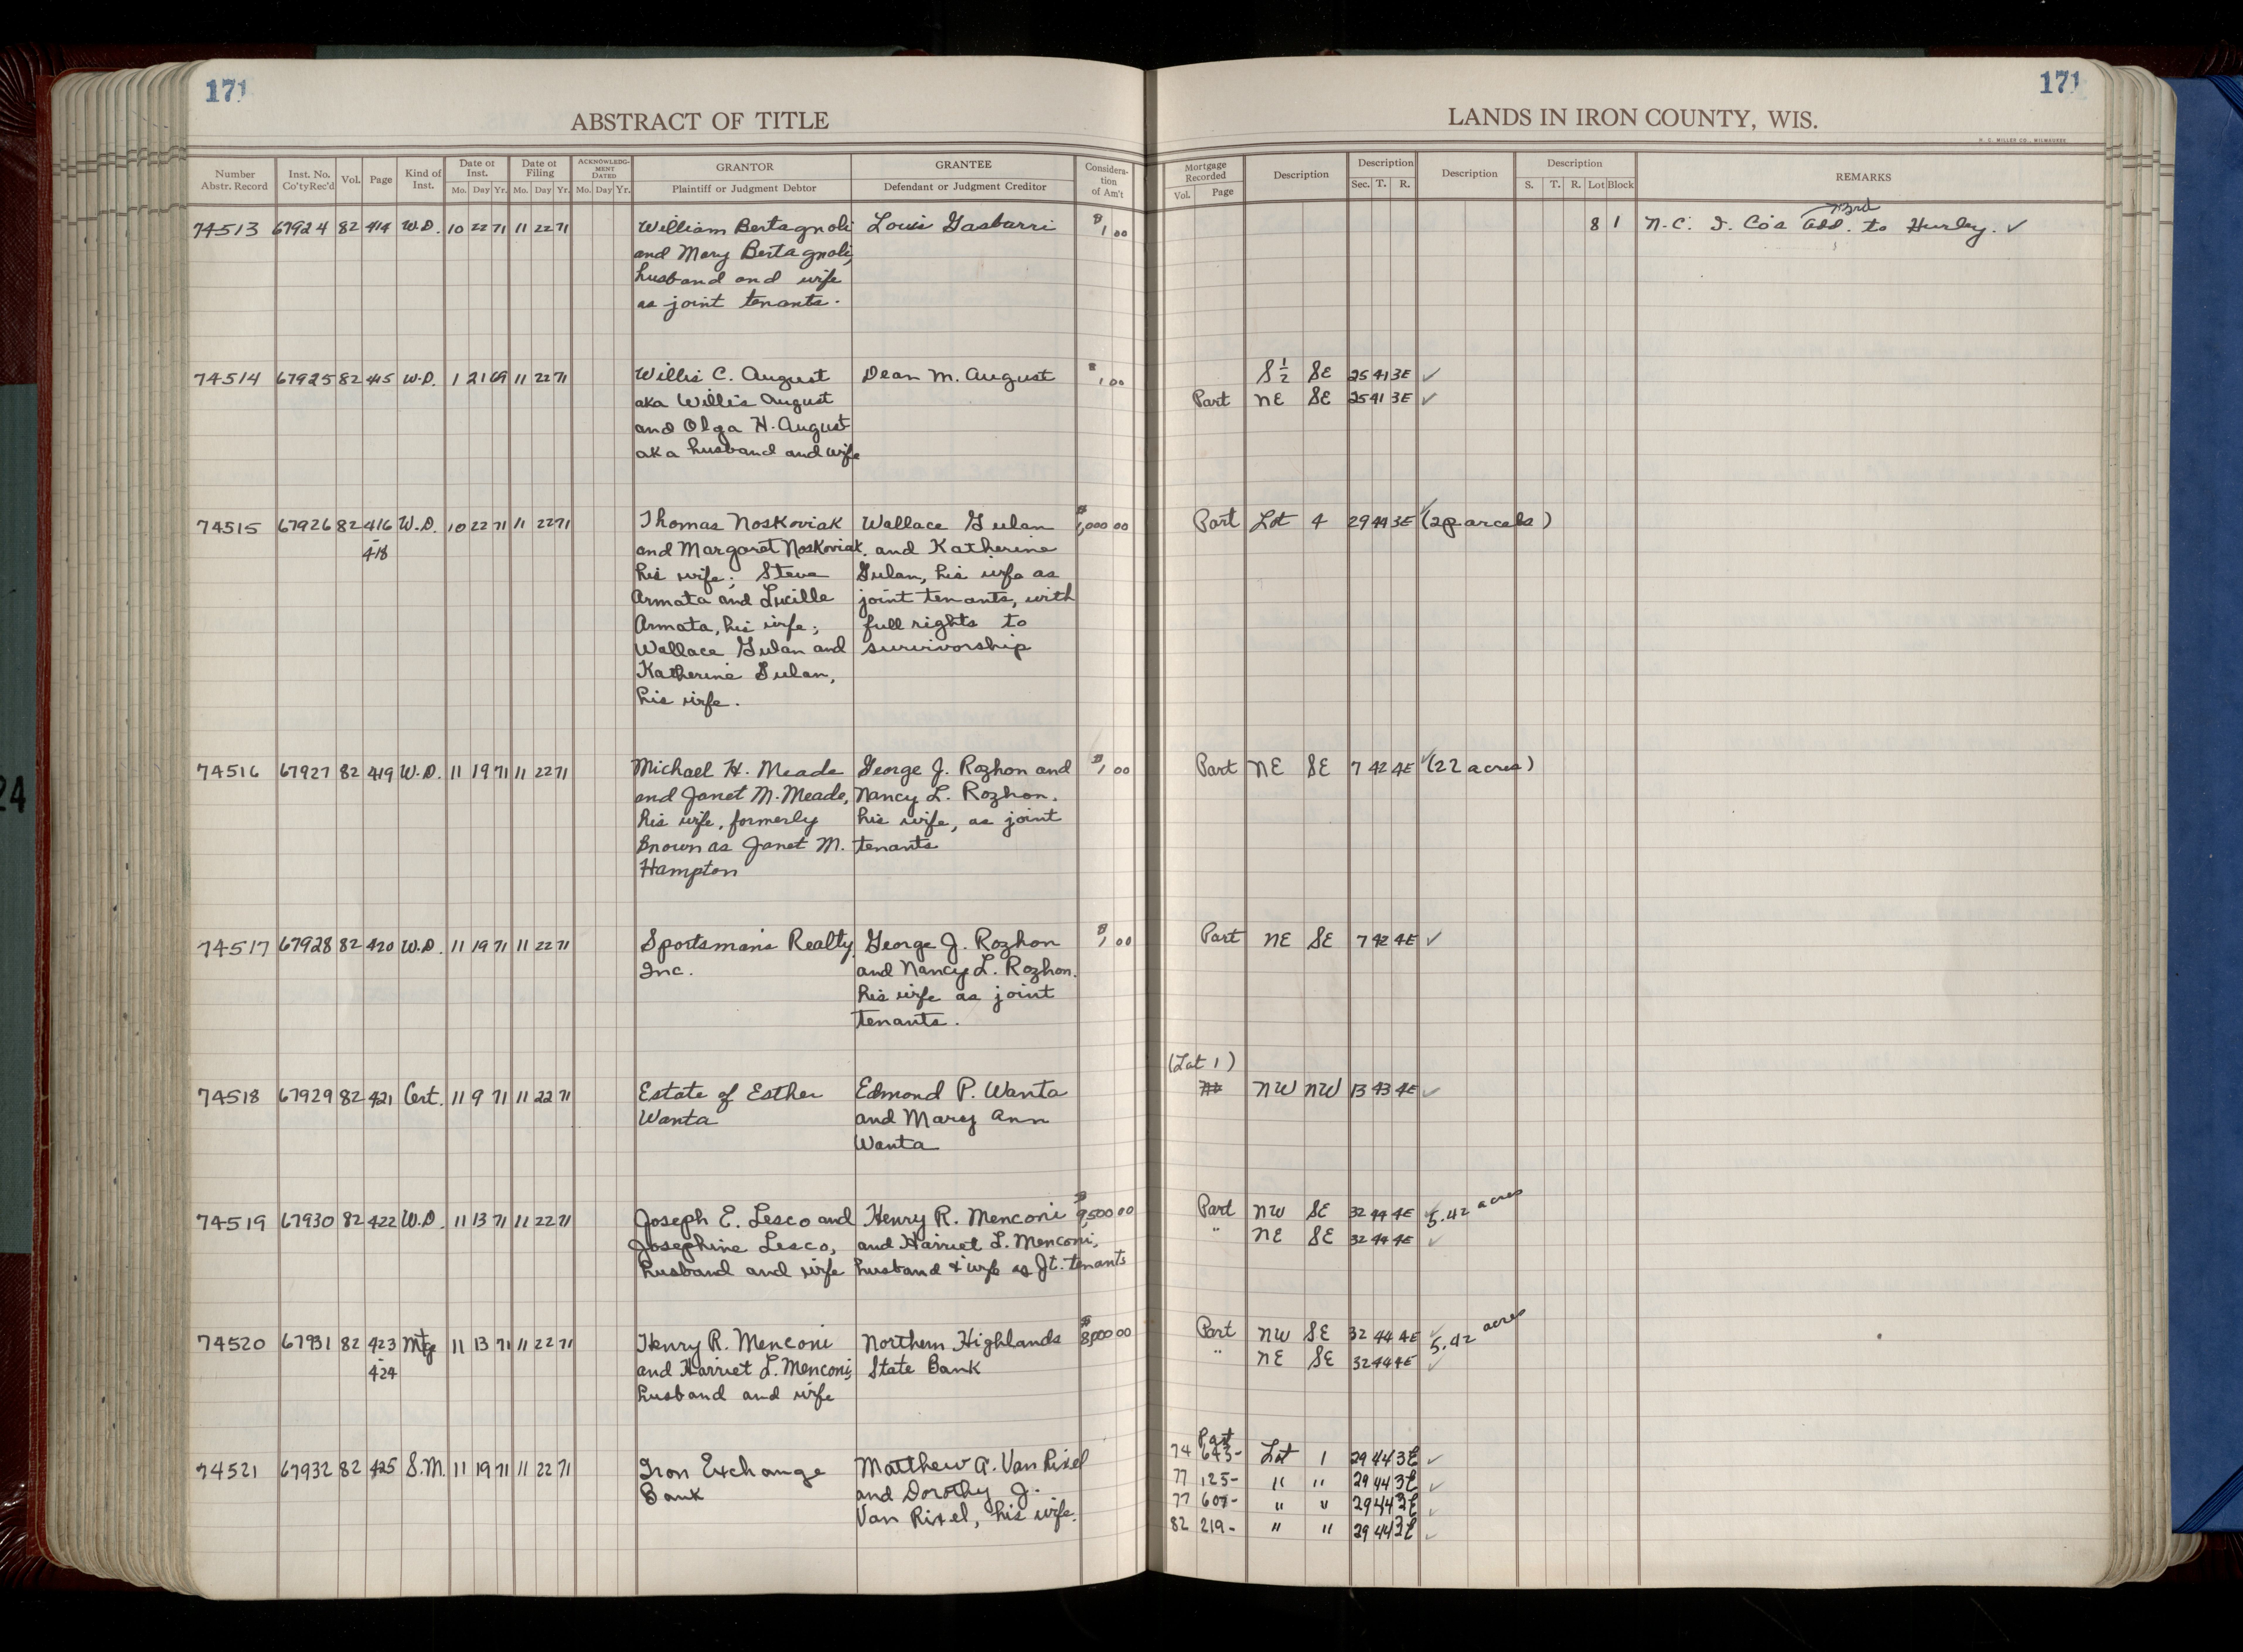 171
171
ABSTRACT OF TITLE
LANDS IN IRON COUNTY, WIS.
H. C. MILLER CO., MILWAUKEE
Number Abstr. Record
Inst. No. Co'tyRec'd
Vol.
Page
Kind of Inst.
Date of Inst.
Mo. Day Yr.
Date of Filing
Mo. Day Yr.
ACKNOWLEDGMENT DATED
Mo. Day Yr.
GRANTOR
Plaintiff or Judgment Debtor
GRANTEE
Defendant or Judgment Creditor
Consideration of Am't
Mortgage Recorded
Vol. Page
Description
Description
Sec. T. R.
Description
Description
S. T. R. Lot Block
REMARKS
74513 67924 82 414 W.D. 10 22 71 11 22 71 William Bertagnoli Louis Gasbarri $1,00 8 1 N.C. I. Co's 3rd add. to Hurley. ✓
and Mary Bertagnoli,
husband and wife
as joint tenants.
74514 67925 82 415 W.D. 1 21 69 11 22 71 Willis C. August Dean M. August $1,00 S½ SE 25 41 3E ✓
aka Willis August Part NE SE 25 41 3E ✓
and Olga H. August
aka husband and wife
74515 67926 82 416 W.D. 10 22 71 11 22 71 Thomas Noskoviak Wallace Gulan $1,000 00 Part Lot 4 29 44 3E ✓ (2 parcels)
- 418 and Margaret Noskoviak, and Katherine
his wife; Steve Gulan, his wife as
Armata and Lucille joint tenants, with
Armata, his wife; full rights to
Wallace Gulan and survivorship
Katherine Gulan,
his wife.
74516 67927 82 419 W.D. 11 19 71 11 22 71 Michael H. Meade George J. Rozhon and $1,00 Part NE SE 7 42 4E ✓ (22 acres)
and Janet M. Meade, Nancy L. Rozhon,
his wife, formerly his wife, as joint
known as Janet M. tenants
Hampton
74517 67928 82 420 W.D. 11 19 71 11 22 71 Sportsman's Realty, George J. Rozhon $1,00 Part NE SE 7 42 4E ✓
Inc. and Nancy L. Rozhon,
his wife as joint
tenants.
(Lot 1)
74518 67929 82 421 Cert. 11 9 71 11 22 71 Estate of Esther Edmond P. Wanta NW NW 13 43 4E ✓
Wanta and Mary Ann
Wanta
74519 67930 82 422 W.D. 11 13 71 11 22 71 Joseph E. Lesco and Henry R. Menconi $9,500 00 Part NW SE 32 44 4E ✓ 5.42 acres
Josephine Lesco, and Harriet L. Menconi, " NE SE 32 44 4E ✓
husband and wife husband & wife as Jt. tenants
74520 67931 82 423 Mtg 11 13 71 11 22 71 Henry R. Menconi Northern Highlands $8,000 00 Part NW SE 32 44 4E ✓ 5.42 acres
- 424 and Harriet L. Menconi, State Bank " NE SE 32 44 4E ✓
husband and wife
Part
74521 67932 82 425 S.M. 11 19 71 11 22 71 Iron Exchange Matthew A. Van Rixel 74 643- Lot 1 29 44 3E ✓
Bank and Dorothy J. 77 125- " " 29 44 3E ✓
Van Rixel, his wife. 77 607- " " 29 44 3E ✓
82 219- " " 29 44 3E ✓